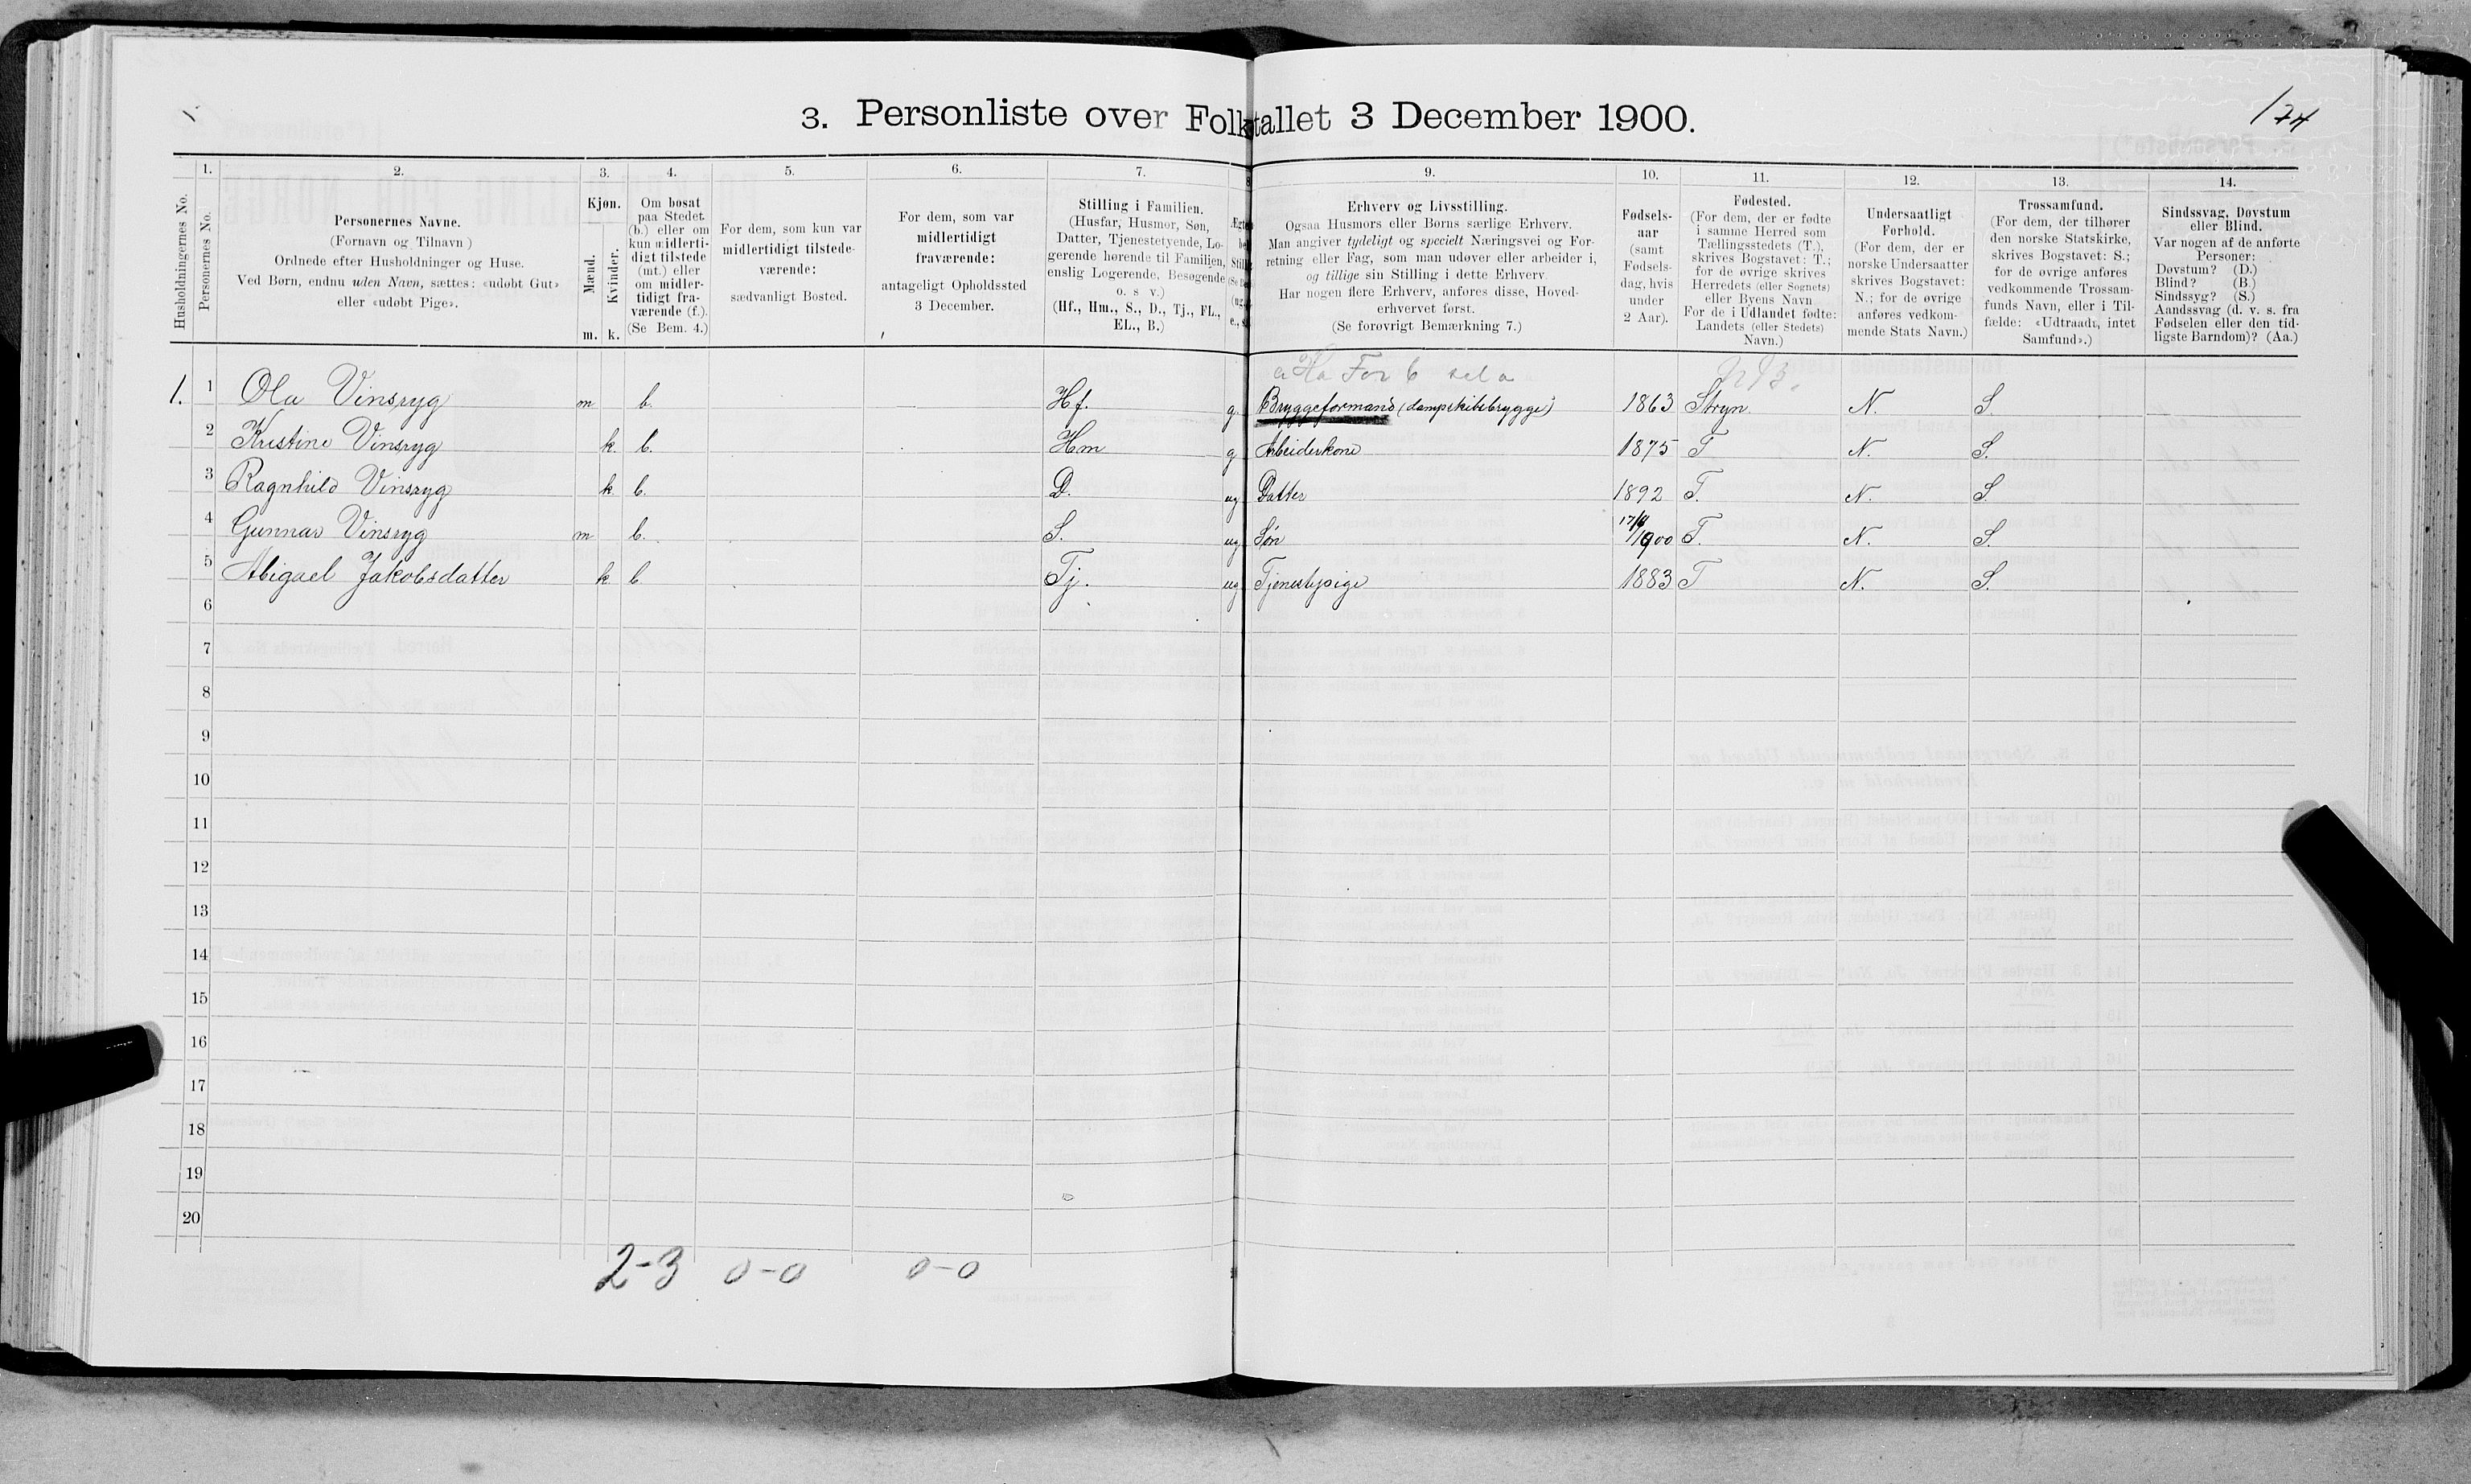 3. Personliste over Folketallet 3 December 1900.
124
Husholdningernes No.
1.
Personernes No.
2.
Personernes Navne.
(Fornavn og Tilnavn)
Ordnede efter Husholdninger og Huse.
Ved Børn, endnu uden Navn, sættes: «udøbt Gut»
eller «udøbt Pige».
3.
Kjøn.
Mænd.
Kvinder.
m. k.
4.
Om bosat
paa Stedet
(b.) eller om
kun midlerti-
digt tilstede
(mt.) eller
om midler-
tidigt fra-
værende (f.).
(Se Bem. 4.)
5.
For dem, som kun var
midlertidigt tilstede-
værende:
sædvanligt Bosted.
6.
For dem, som var
midlertidigt
fraværende:
antageligt Opholdssted
3 December.
7.
Stilling i Familien.
(Husfar, Husmor, Søn,
Datter, Tjenestetyende, Lo-
gerende hørende til Familien,
enslig Logerende, Besøgende
o. s v.)
(Hf., Hm., S., D., Tj., FL.,
EL., B.)
9.
Erhverv og Livsstilling.
Ogsaa Husmors eller Børns særlige Erhverv.
Man angiver tydeligt og specielt Næringsvei og For-
retning eller Fag, som man udøver eller arbeider i,
og tillige sin Stilling i dette Erhverv.
Har nogen flere Erhverv, anføres disse, Hoved-
erhvervet først.
(Se forøvrigt Bemærkning 7.)
10.
Fødsels-
aar
(samt
Fødsels-
dag, hvis
under
2 Aar).
11.
Fødested.
(For dem, der er fødte
i samme Herred som
Tællingsstedets (T.),
skrives Bogstavet: T.;
for de øvrige skrives
Herredets (eller Sognets)
eller Byens Navn
For de i Udlandet fødte:
Landets (eller Stedets)
Navn.)
12.
Undersaatligt
Forhold.
(For dem, der er
norske Undersaatter
skrives Bogstavet:
N.; for de øvrige
anføres vedkom-
mende Stats Navn.)
13.
Trossamfund.
(For dem, der tilhører
den norske Statskirke,
skrives Bogstavet: S.;
for de øvrige anføres
vedkommende Trossam-
funds Navn, eller i Til-
fælde: «Udtraadt, intet
Samfund».)
14.
Sindssvag, Døvstum
eller Blind.
Var nogen af de anførte
Personer:
Døvstum? (D.)
Blind? (B.)
Sindssyg? (S.)
Aandssvag (d. v. s. fra
Fødselen eller den tid-
ligste Barndom)? (Aa.)
1. 1 Ola Vinsryg m b. Hf. g. Bryggeformand (dampskibsbrygge) 1863 Stryn N. S.
2 Kristine Vinsryg k. b. Hm g Arbeiderkone 1875 T N. S.
3 Ragnhild Vinsryg k b. D. ug Datter 1892 T. N. S.
4 Gunnar Vinsryg m b. S. ug Søn 1900 T. N. S.
5 Abigael Jakobsdatter k b Tj. ug Tjenestepige 1883 T N. S.
6
7
8
9
10
11
12
13
14
15
16
17
18
19
20
2-3 0-0 0-0